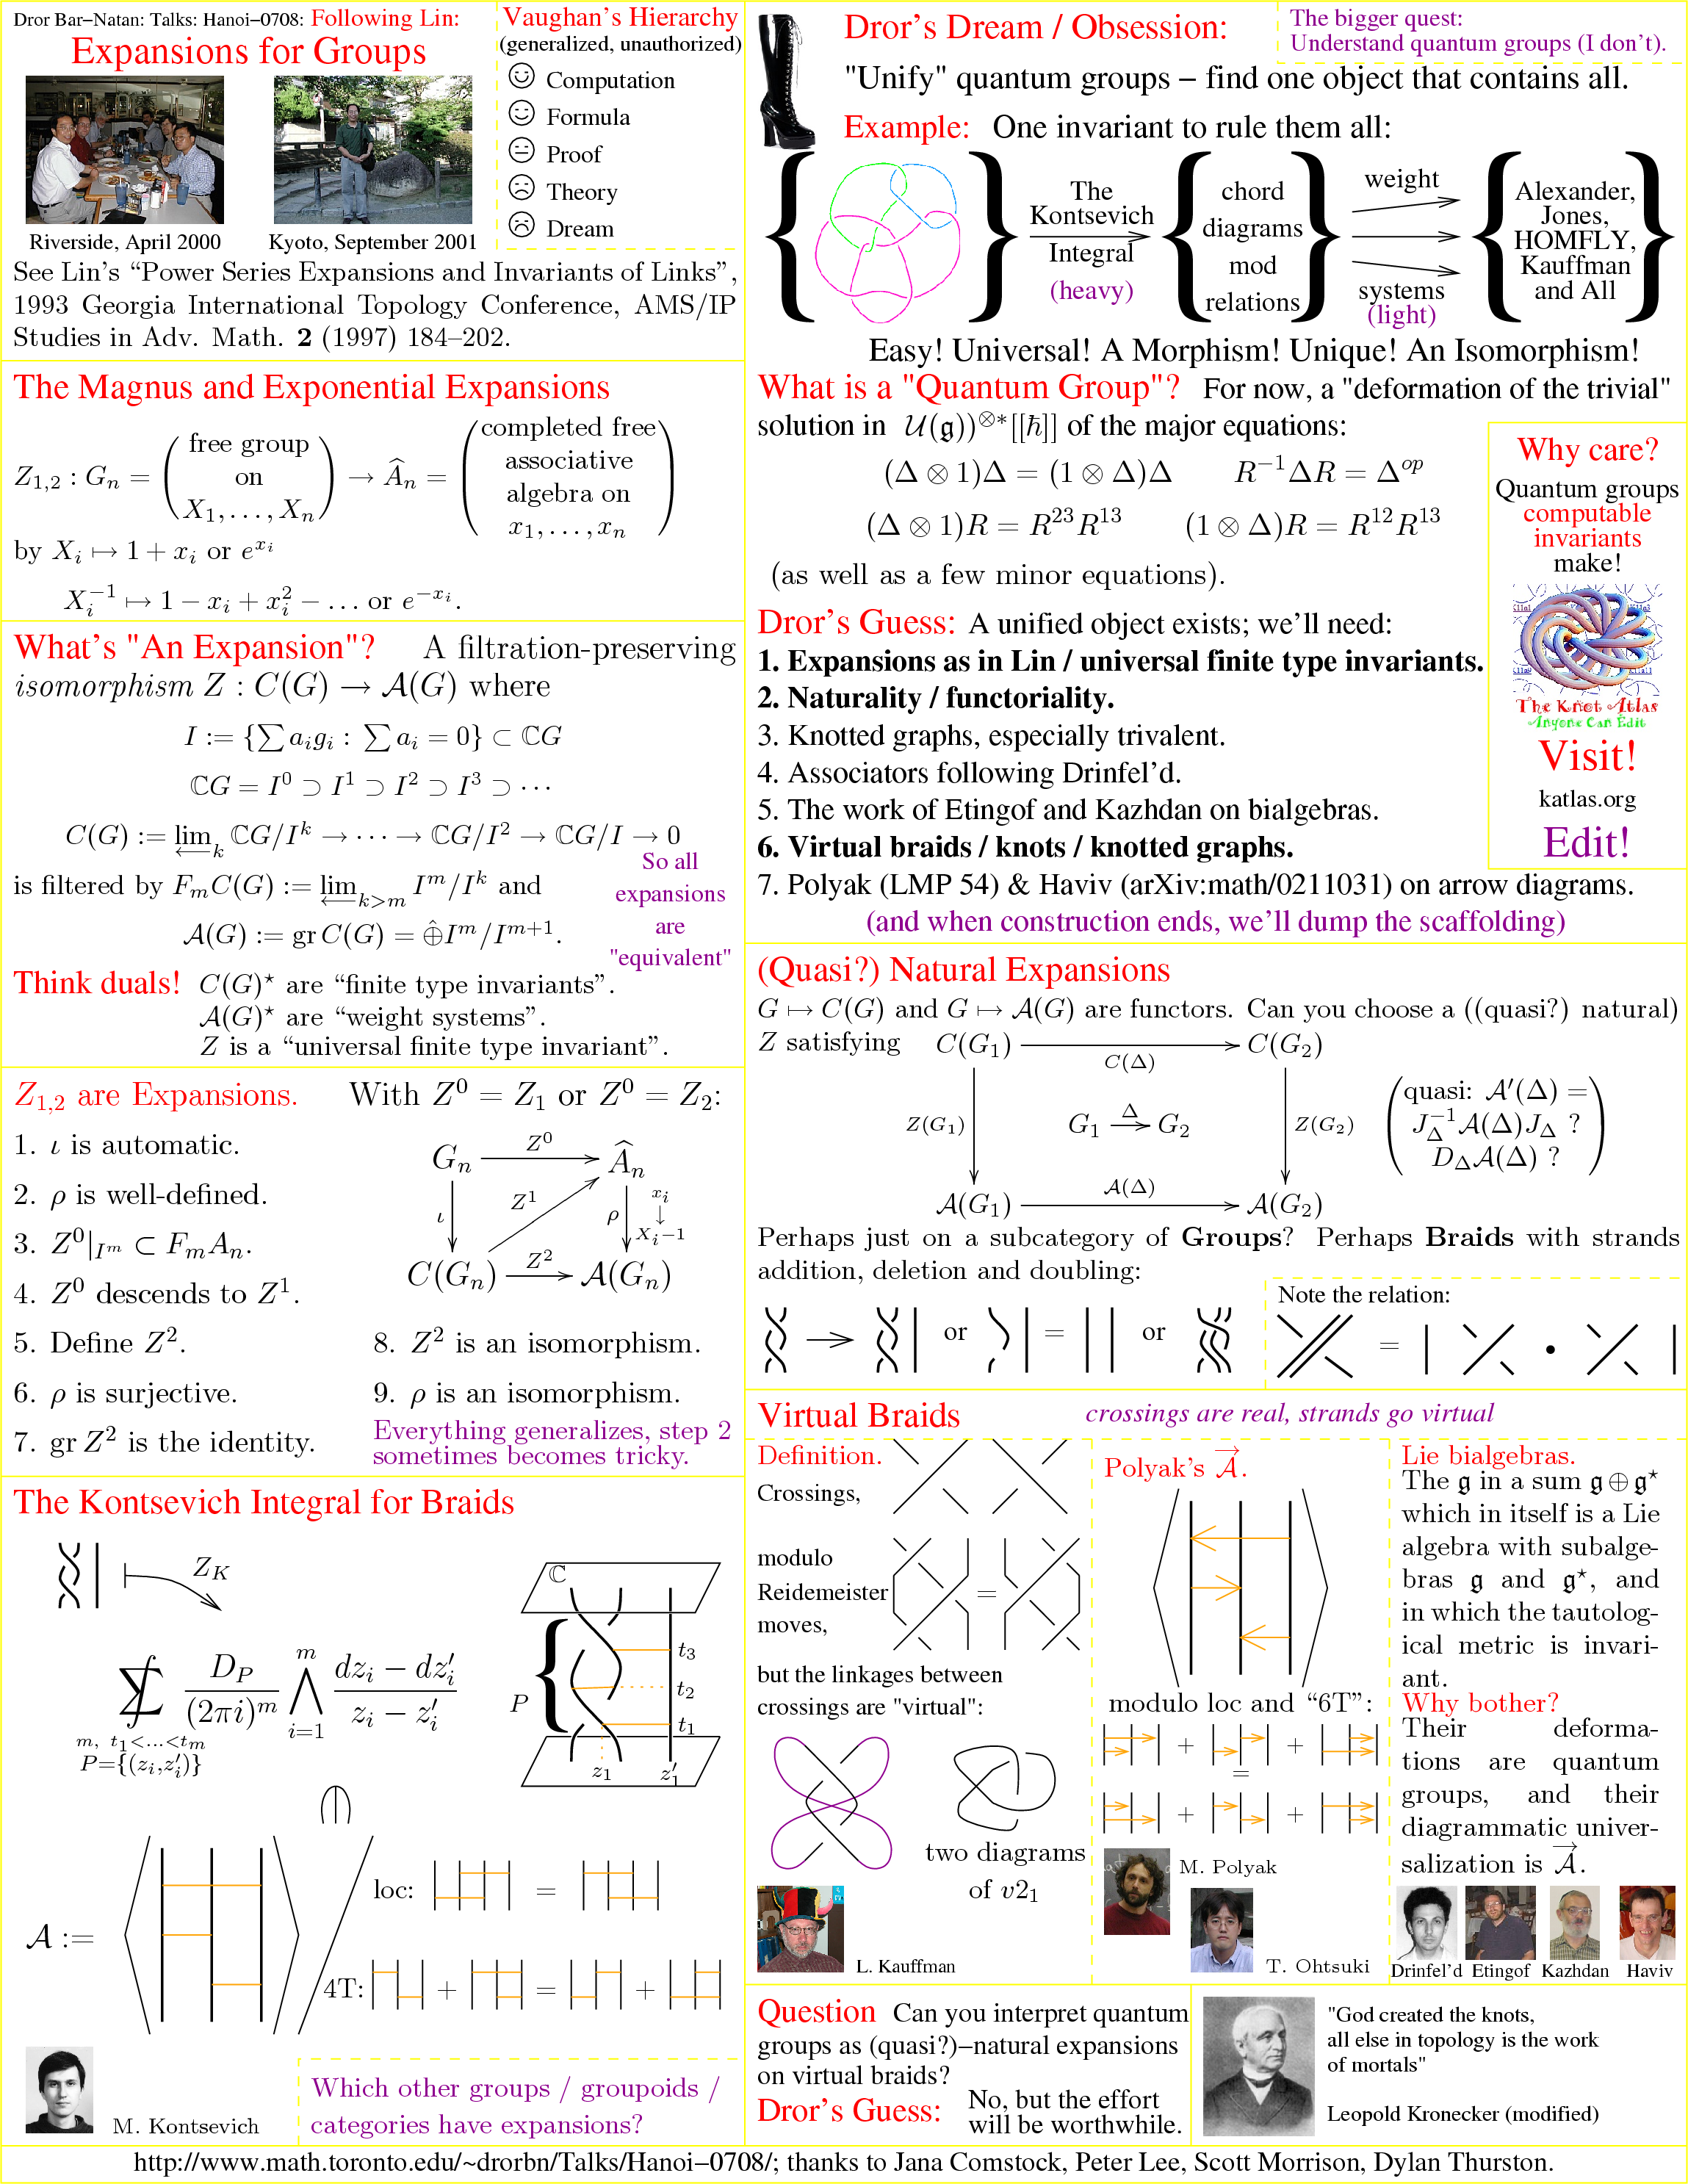 Dror Bar−Natan: Talks: Hanoi−0708: Following Lin:
Expansions for Groups
Riverside, April 2000
Kyoto, September 2001
Vaughan's Hierarchy
(generalized, unauthorized)
Computation
Formula
Proof
Theory
Dream
See Lin's “Power Series Expansions and Invariants of Links”,
1993 Georgia International Topology Conference, AMS/IP
Studies in Adv. Math. 2 (1997) 184–202.
The Magnus and Exponential Expansions
Z_{1,2} : G_n = ( free group on X_1, . . . , X_n ) → Â_n = ( completed free associative algebra on x_1, . . . , x_n )
by X_i ↦ 1 + x_i or e^{x_i}
X_i^{−1} ↦ 1 − x_i + x_i^2 − . . . or e^{−x_i}.
What's "An Expansion"? A filtration-preserving
isomorphism Z : C(G) → 𝒜(G) where
I := {∑ a_i g_i : ∑ a_i = 0} ⊂ ℂG
ℂG = I^0 ⊃ I^1 ⊃ I^2 ⊃ I^3 ⊃ · · ·
C(G) := lim_{←k} ℂG/I^k → · · · → ℂG/I^2 → ℂG/I → 0
is filtered by F_m C(G) := lim_{←k>m} I^m/I^k and
𝒜(G) := gr C(G) = ⊕̂ I^m/I^{m+1}.
So all
expansions
are
"equivalent"
Think duals! C(G)^⋆ are “finite type invariants”.
𝒜(G)^⋆ are “weight systems”.
Z is a “universal finite type invariant”.
Z_{1,2} are Expansions. With Z^0 = Z_1 or Z^0 = Z_2:
1. ι is automatic.
2. ρ is well-defined.
3. Z^0|_{I^m} ⊂ F_m A_n.
4. Z^0 descends to Z^1.
5. Define Z^2.
6. ρ is surjective.
7. gr Z^2 is the identity.
G_n Z^0 Â_n
ι Z^1 ρ x_i ↓ X_i−1
C(G_n) Z^2 𝒜(G_n)
8. Z^2 is an isomorphism.
9. ρ is an isomorphism.
Everything generalizes, step 2
sometimes becomes tricky.
The Kontsevich Integral for Braids
Z_K
∑∫ D_P/(2πi)^m ⋀_{i=1}^m (dz_i − dz'_i)/(z_i − z'_i)
m, t_1<...<t_m
P={(z_i,z'_i)}
ℂ
P
t_3
t_2
t_1
z_1 z'_1
𝒜 :=
loc: =
4T: + = +
M. Kontsevich
Which other groups / groupoids /
categories have expansions?
Dror's Dream / Obsession:
The bigger quest:
Understand quantum groups (I don't).
"Unify" quantum groups − find one object that contains all.
Example: One invariant to rule them all:
The
Kontsevich
Integral
(heavy)
chord
diagrams
mod
relations
weight
systems
(light)
Alexander,
Jones,
HOMFLY,
Kauffman
and All
Easy! Universal! A Morphism! Unique! An Isomorphism!
What is a "Quantum Group"? For now, a "deformation of the trivial"
solution in 𝒰(𝔤))^{⊗∗}[[ℏ]] of the major equations:
(Δ ⊗ 1)Δ = (1 ⊗ Δ)Δ R^{−1}ΔR = Δ^{op}
(Δ ⊗ 1)R = R^{23}R^{13} (1 ⊗ Δ)R = R^{12}R^{13}
(as well as a few minor equations).
Why care?
Quantum groups
computable
invariants
make!
The Knot Atlas
Anyone Can Edit
Visit!
katlas.org
Edit!
Dror's Guess: A unified object exists; we'll need:
1. Expansions as in Lin / universal finite type invariants.
2. Naturality / functoriality.
3. Knotted graphs, especially trivalent.
4. Associators following Drinfel'd.
5. The work of Etingof and Kazhdan on bialgebras.
6. Virtual braids / knots / knotted graphs.
7. Polyak (LMP 54) & Haviv (arXiv:math/0211031) on arrow diagrams.
(and when construction ends, we'll dump the scaffolding)
(Quasi?) Natural Expansions
G ↦ C(G) and G ↦ 𝒜(G) are functors. Can you choose a ((quasi?) natural)
Z satisfying C(G_1) C(Δ) C(G_2)
Z(G_1) G_1 Δ G_2 Z(G_2)
𝒜(G_1) 𝒜(Δ) 𝒜(G_2)
quasi: 𝒜'(Δ) =
J_Δ^{−1}𝒜(Δ)J_Δ ?
D_Δ𝒜(Δ) ?
Perhaps just on a subcategory of Groups? Perhaps Braids with strands
addition, deletion and doubling:
or = or
Note the relation:
=
Virtual Braids
crossings are real, strands go virtual
Definition.
Crossings,
modulo
Reidemeister
moves,
=
but the linkages between
crossings are "virtual":
two diagrams
of v2_1
L. Kauffman
Polyak's 𝒜⃗.
modulo loc and “6T”:
+ +
=
+ +
M. Polyak
T. Ohtsuki
Lie bialgebras.
The 𝔤 in a sum 𝔤 ⊕ 𝔤^⋆
which in itself is a Lie
algebra with subalge-
bras 𝔤 and 𝔤^⋆, and
in which the tautolog-
ical metric is invari-
ant.
Why bother?
Their deforma-
tions are quantum
groups, and their
diagrammatic univer-
salization is 𝒜⃗.
Drinfel'd Etingof Kazhdan Haviv
Question Can you interpret quantum
groups as (quasi?)−natural expansions
on virtual braids?
Dror's Guess: No, but the effort
will be worthwhile.
"God created the knots,
all else in topology is the work
of mortals"
Leopold Kronecker (modified)
http://www.math.toronto.edu/~drorbn/Talks/Hanoi−0708/; thanks to Jana Comstock, Peter Lee, Scott Morrison, Dylan Thurston.